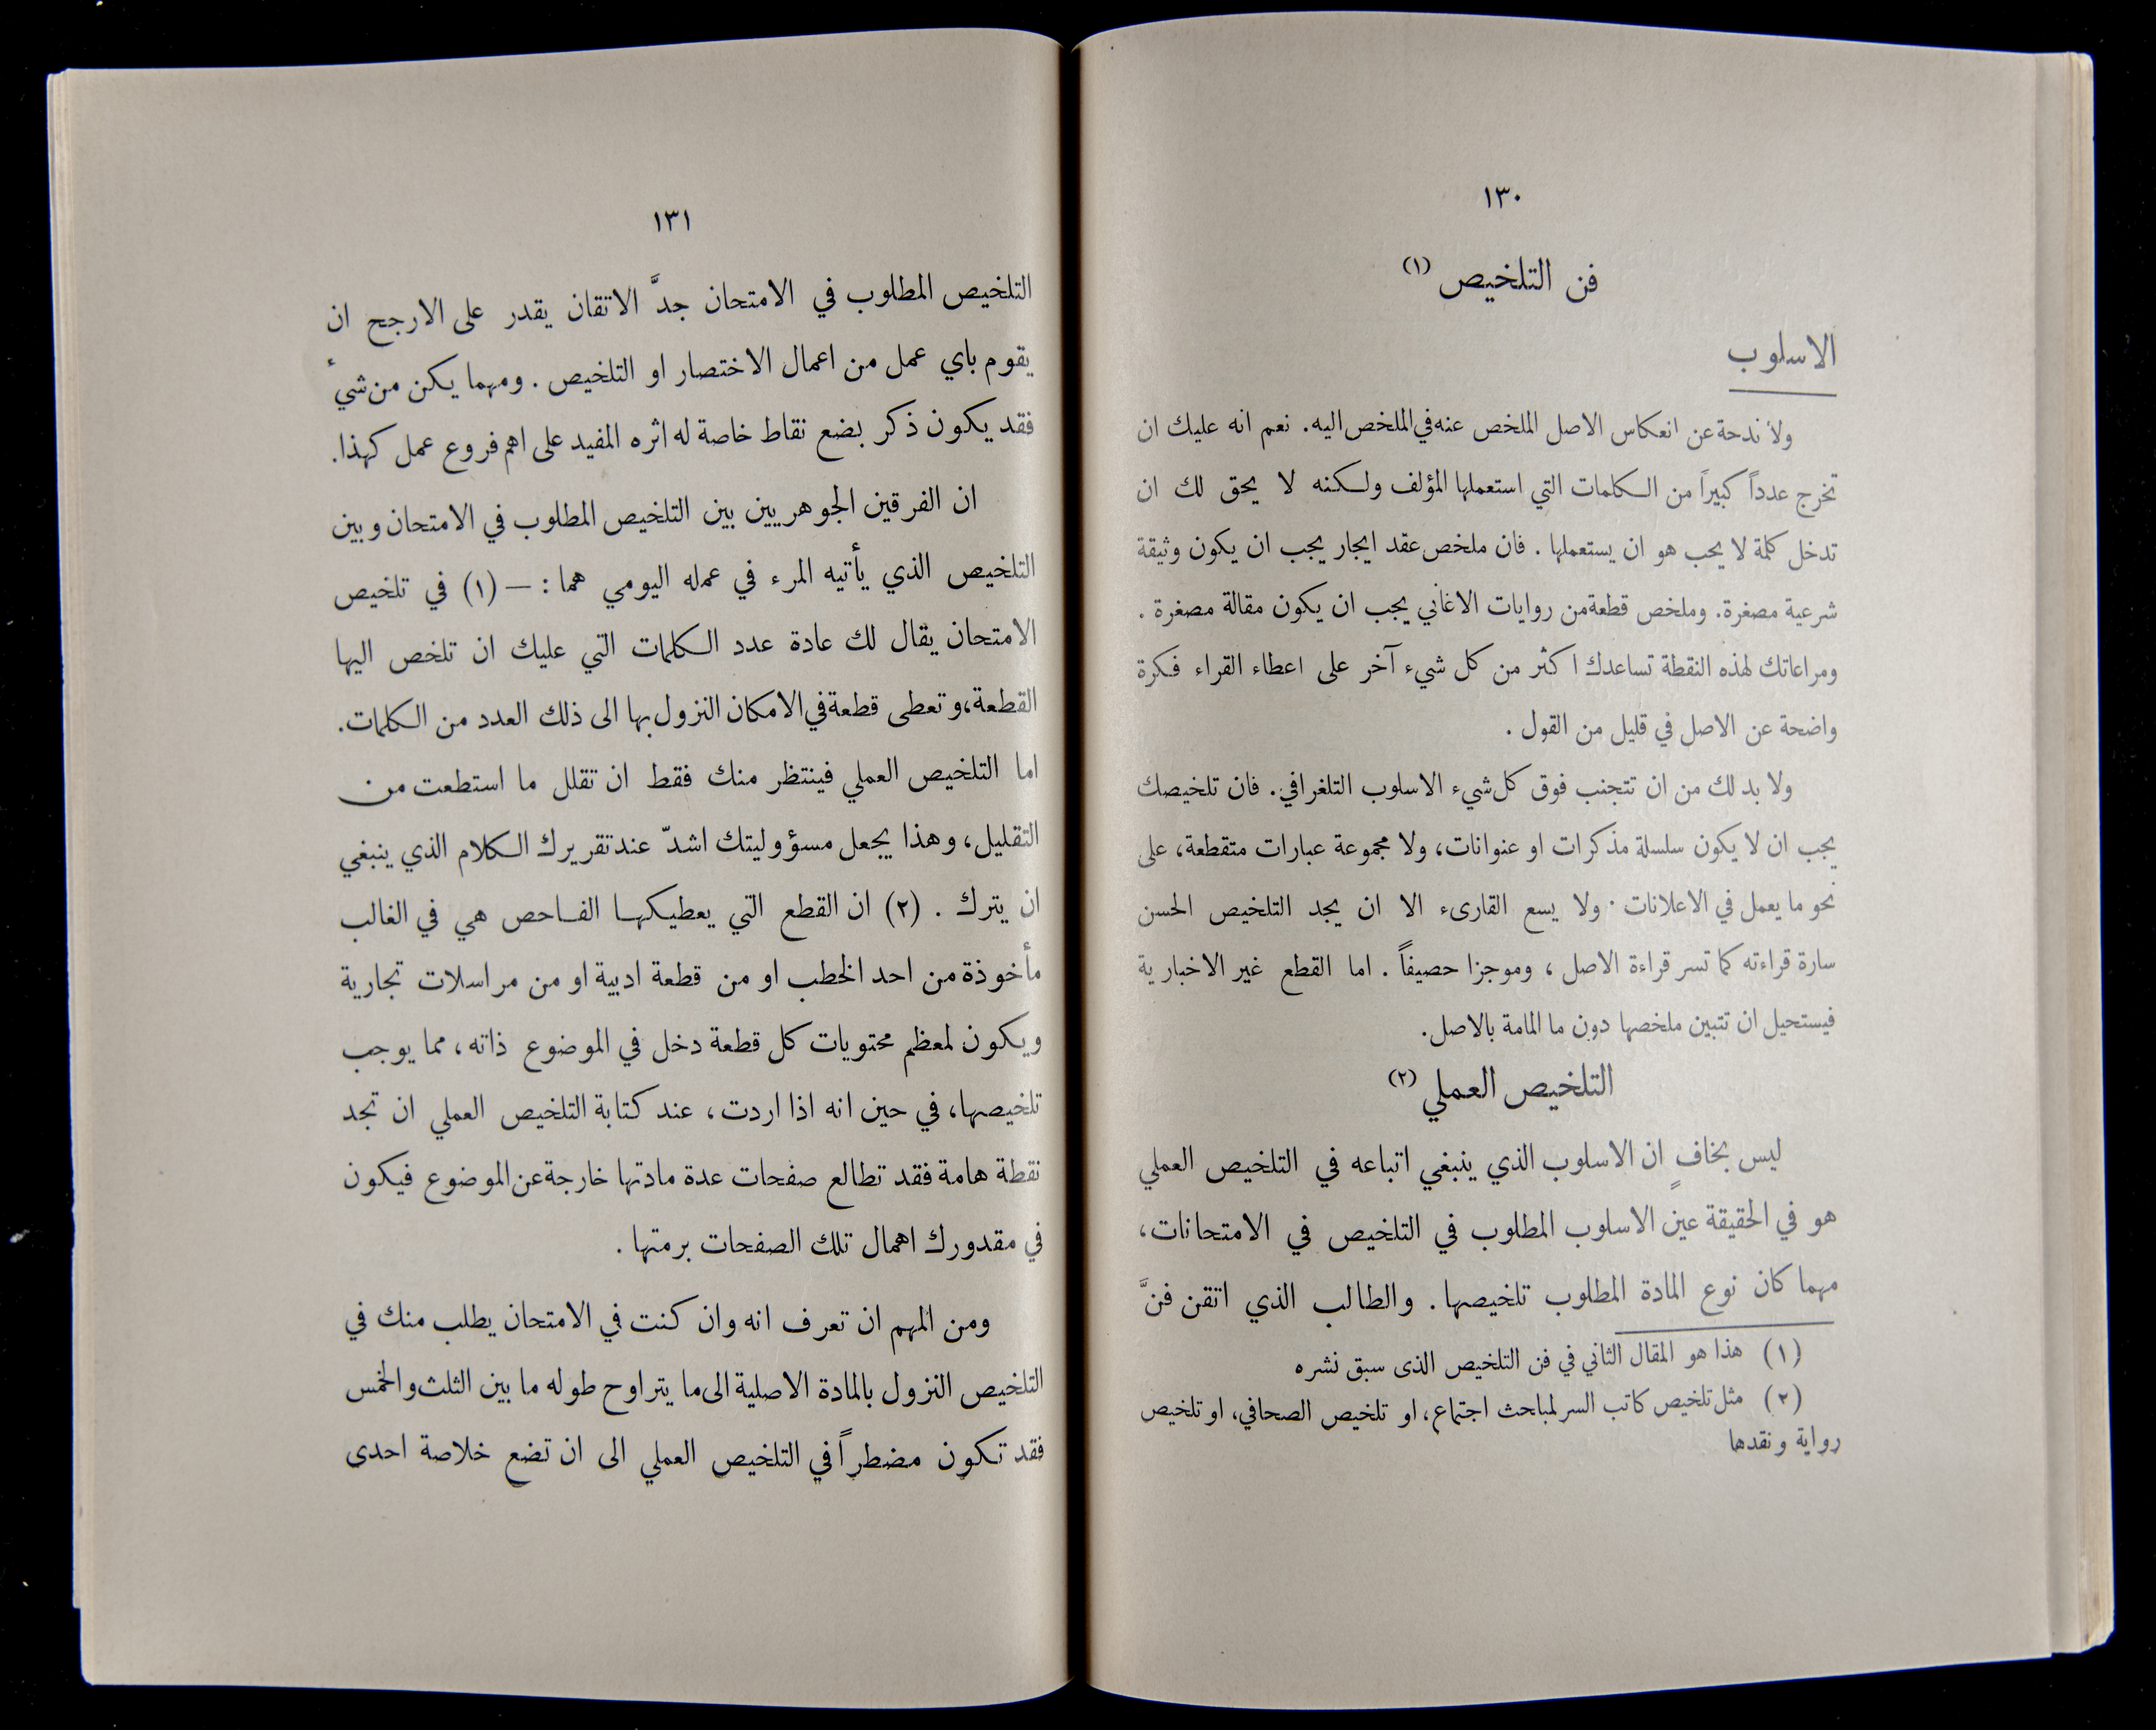 ١٣٠
فن التلخيص (١)
الاسلوب
ولا ندحة عن انعكاس الاصل الملخص عنه في الملخص اليه. نعم انه عليك ان
تخرج عدداً كبيراً من الكلمات التي استعملها المؤلف ولكنه لا يحق لك ان
تدخل كلمة لا يحب هو ان يستعملها . فان ملخص عقد ايجار يجب ان يكون وثيقة
شرعية مصغرة. وملخص قطعة من روايات الاغاني يجب ان يكون مقالة مصغرة .
ومراعاتك لهذه النقطة تساعدك اكثر من كل شيء آخر على اعطاء القراء فكرة
واضحة عن الاصل في قليل من القول .
ولا بد لك من ان تتجنب فوق كل شيء الاسلوب التلغرافي. فان تلخيصك
يجب ان لا يكون سلسلة مذكرات او عنوانات، ولا مجموعة عبارات متقطعة، على
نحو ما يعمل في الاعلانات . ولا يسع القارىء الا ان يجد التلخيص الحسن
سارة قراءته كما تسر قراءة الاصل ، وموجزا حصيفاً . اما القطع غير الاخبارية
فيستحيل ان تتبين ملخصها دون ما المامة بالاصل.
التلخيص العملي (٢)
ليس بخافٍ ان الاسلوب الذي ينبغي اتباعه في التلخيص العملي
هو في الحقيقة عين الاسلوب المطلوب في التلخيص في الامتحانات،
مهما كان نوع المادة المطلوب تلخيصها. والطالب الذي اتقن فنَّ
(١) هذا هو المقال الثاني في فن التلخيص الذى سبق نشره
(٢) مثل تلخيص كاتب السر لمباحث اجتماع، او تلخيص الصحافي، او تلخيص
رواية ونقدها
١٣١
التلخيص المطلوب في الامتحان جدَّ الاتقان يقدر على الارجح ان
يقوم باي عمل من اعمال الاختصار او التلخيص . ومهما يكن من شئ
فقد يكون ذكر بضع نقاط خاصة له اثره المفيد على اهم فروع عمل كهذا.
ان الفرقين الجوهريين بين التلخيص المطلوب في الامتحان وبين
التلخيص الذي يأتيه المرء في عمله اليومي هما : — (١) في تلخيص
الامتحان يقال لك عادة عدد الكلمات التي عليك ان تلخص اليها
القطعة، وتعطى قطعة في الامكان النزول بها الى ذلك العدد من الكلمات.
اما التلخيص العملي فينتظر منك فقط ان تقلل ما استطعت من
التقليل، وهذا يجعل مسؤوليتك اشدّ عند تقريرك الكلام الذي ينبغي
ان يترك . (٢) ان القطع التي يعطيكها الفاحص هي في الغالب
مأخوذة من احد الخطب او من قطعة ادبية او من مراسلات تجارية
ويكون لمعظم محتويات كل قطعة دخل في الموضوع ذاته، مما يوجب
تلخيصها، في حين انه اذا اردت ، عند كتابة التلخيص العملي ان تجد
نقطة هامة فقد تطالع صفحات عدة مادتها خارجة عن الموضوع فيكون
في مقدورك اهمال تلك الصفحات برمتها .
ومن المهم ان تعرف انه وان كنت في الامتحان يطلب منك في
التلخيص النزول بالمادة الاصلية الى ما يتراوح طوله ما بين الثلث والخمس
فقد تكون مضطراً في التلخيص العملي الى ان تضع خلاصة احدى